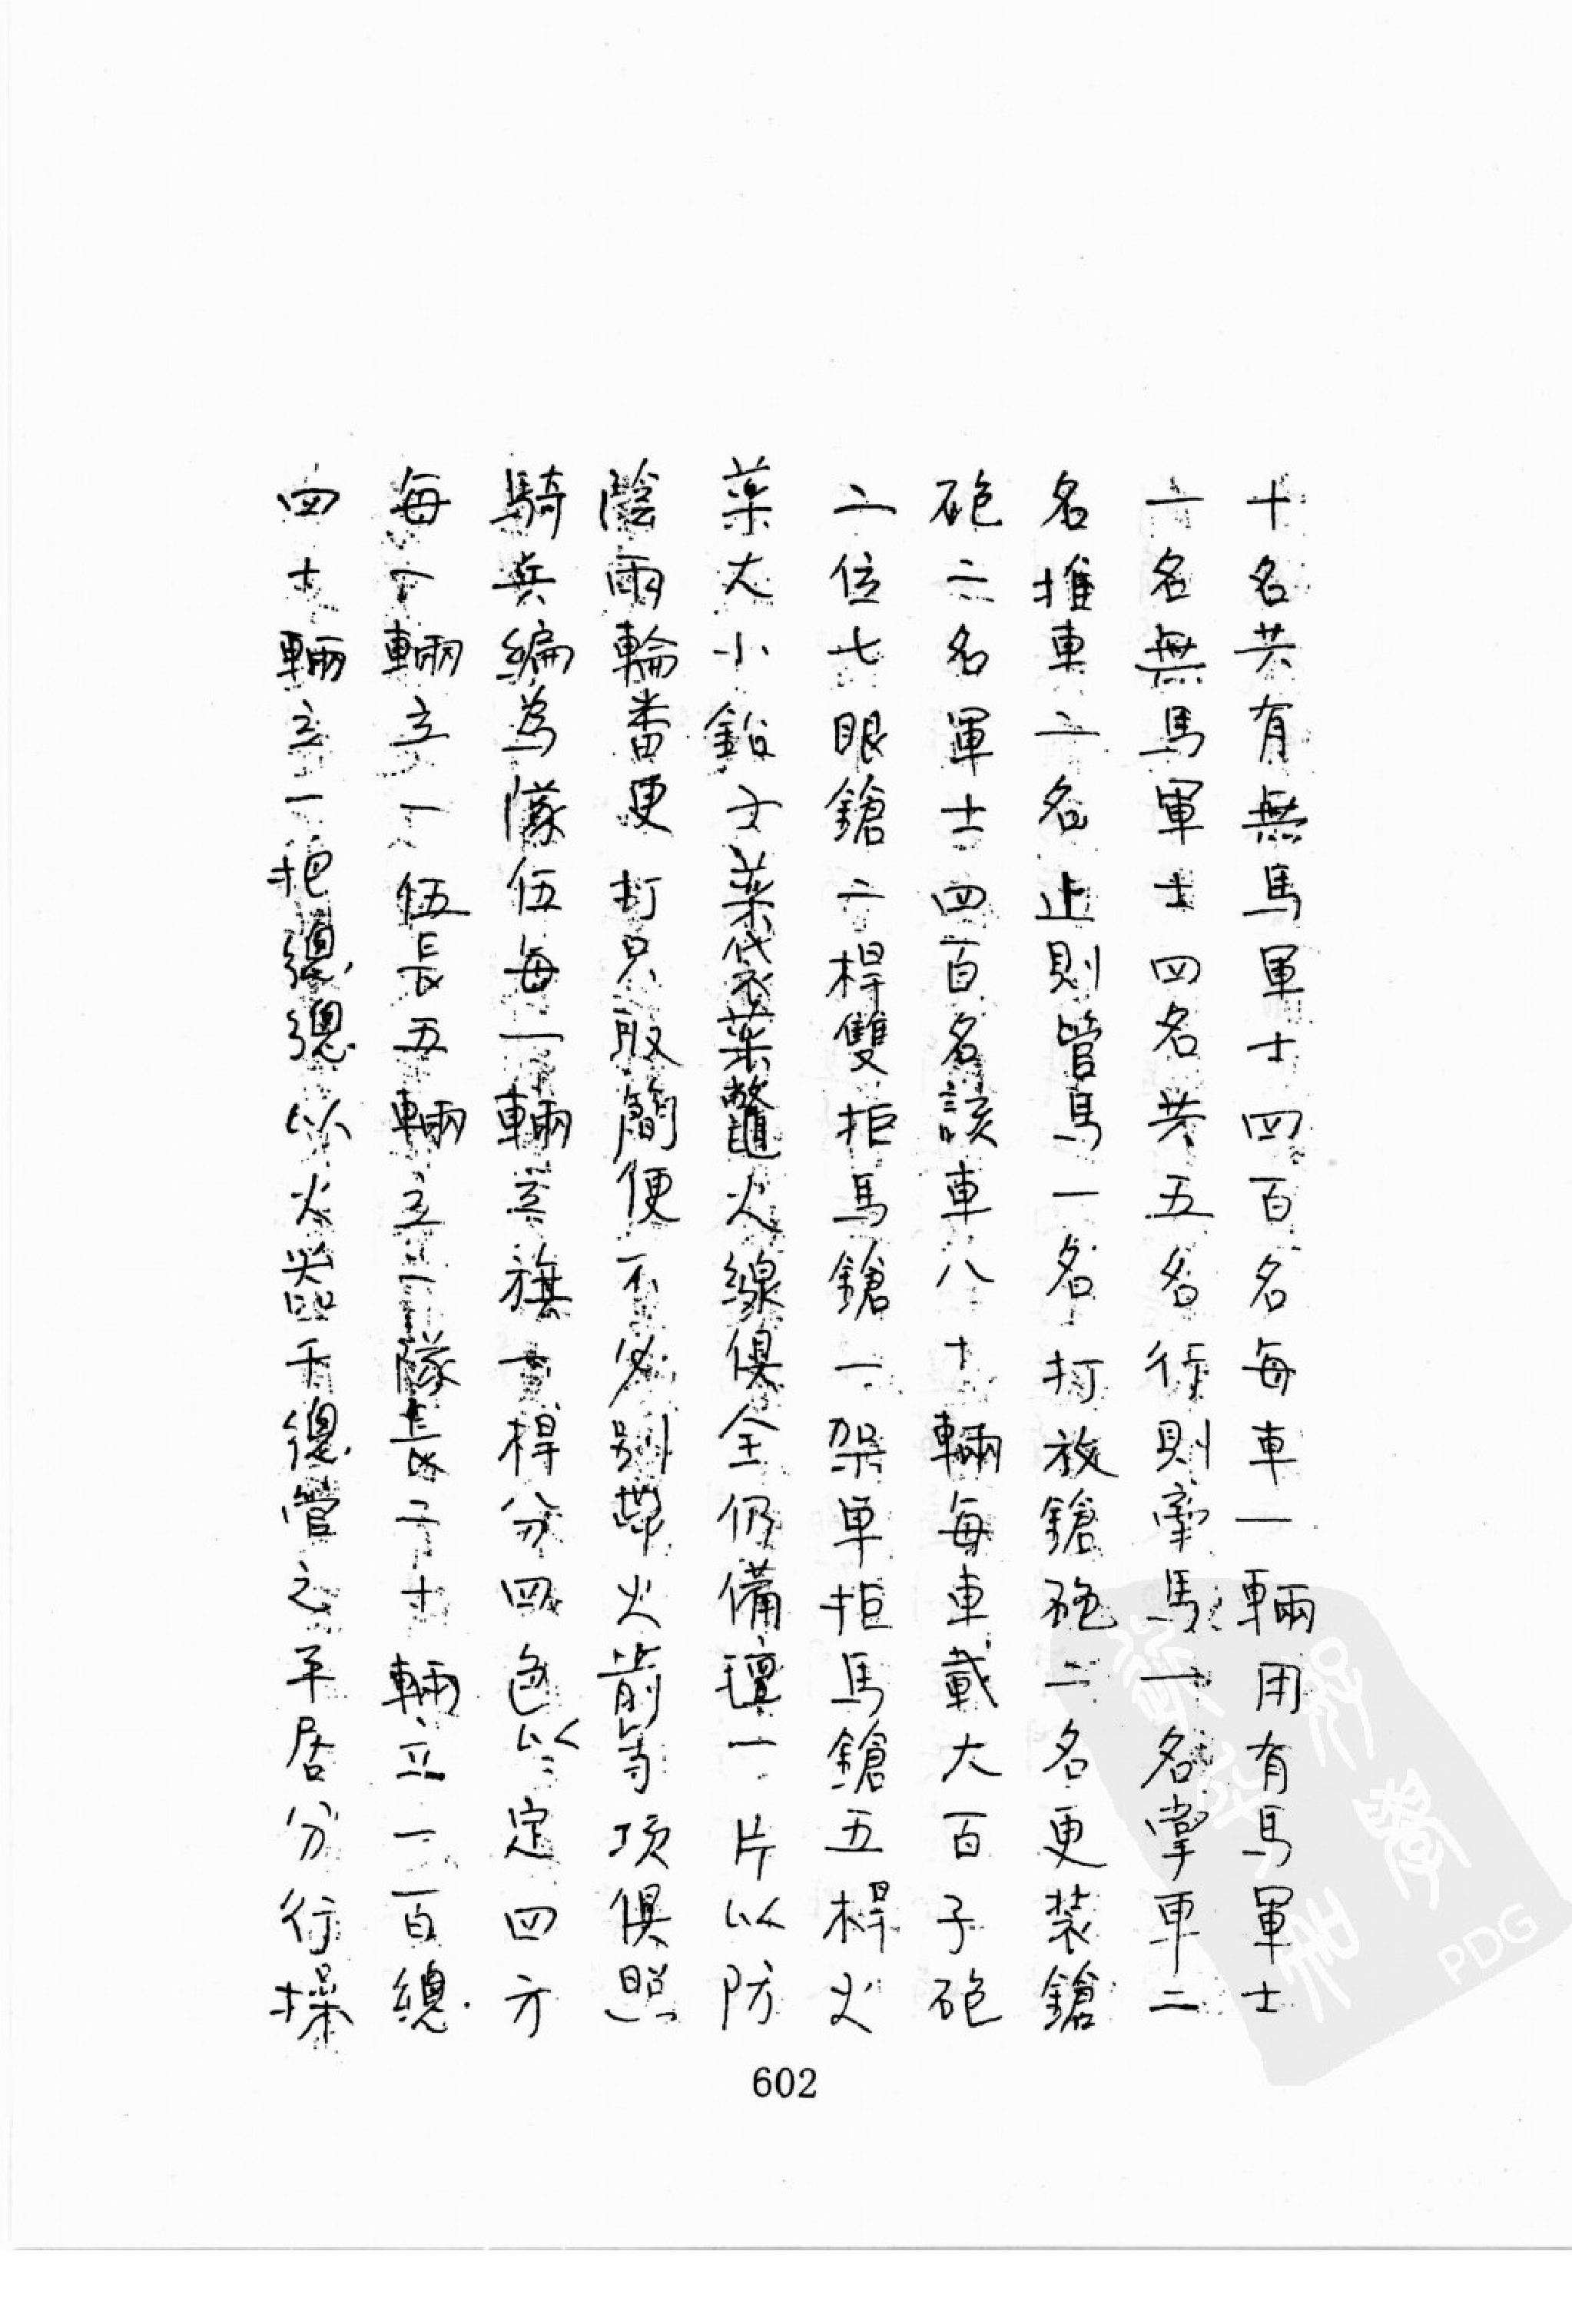 十名共有無馬軍士四百名每車一輛用有馬軍士
一名無馬軍士四名共五名行則牽馬一名掌車二
名推車二名止則管馬一名打放鎗砲二名更裝鎗
砲二名軍士四百名該車八十輛每車載大百子砲
二位七眼鎗二桿雙拒馬鎗一架單拒馬鎗五桿火
藥大小鉛子藥袋藥鼈火線俱全仍備氊一片以防
陰雨輪番更打只取簡便不必別帶火箭等項俱照
騎兵編為隊伍每一輛立旗一桿分四色以定四方
每一輛立一伍長五輛立一隊長二十輛立一百總
四十輛立一把總總以火器千總管之平居分行操
602
PDG